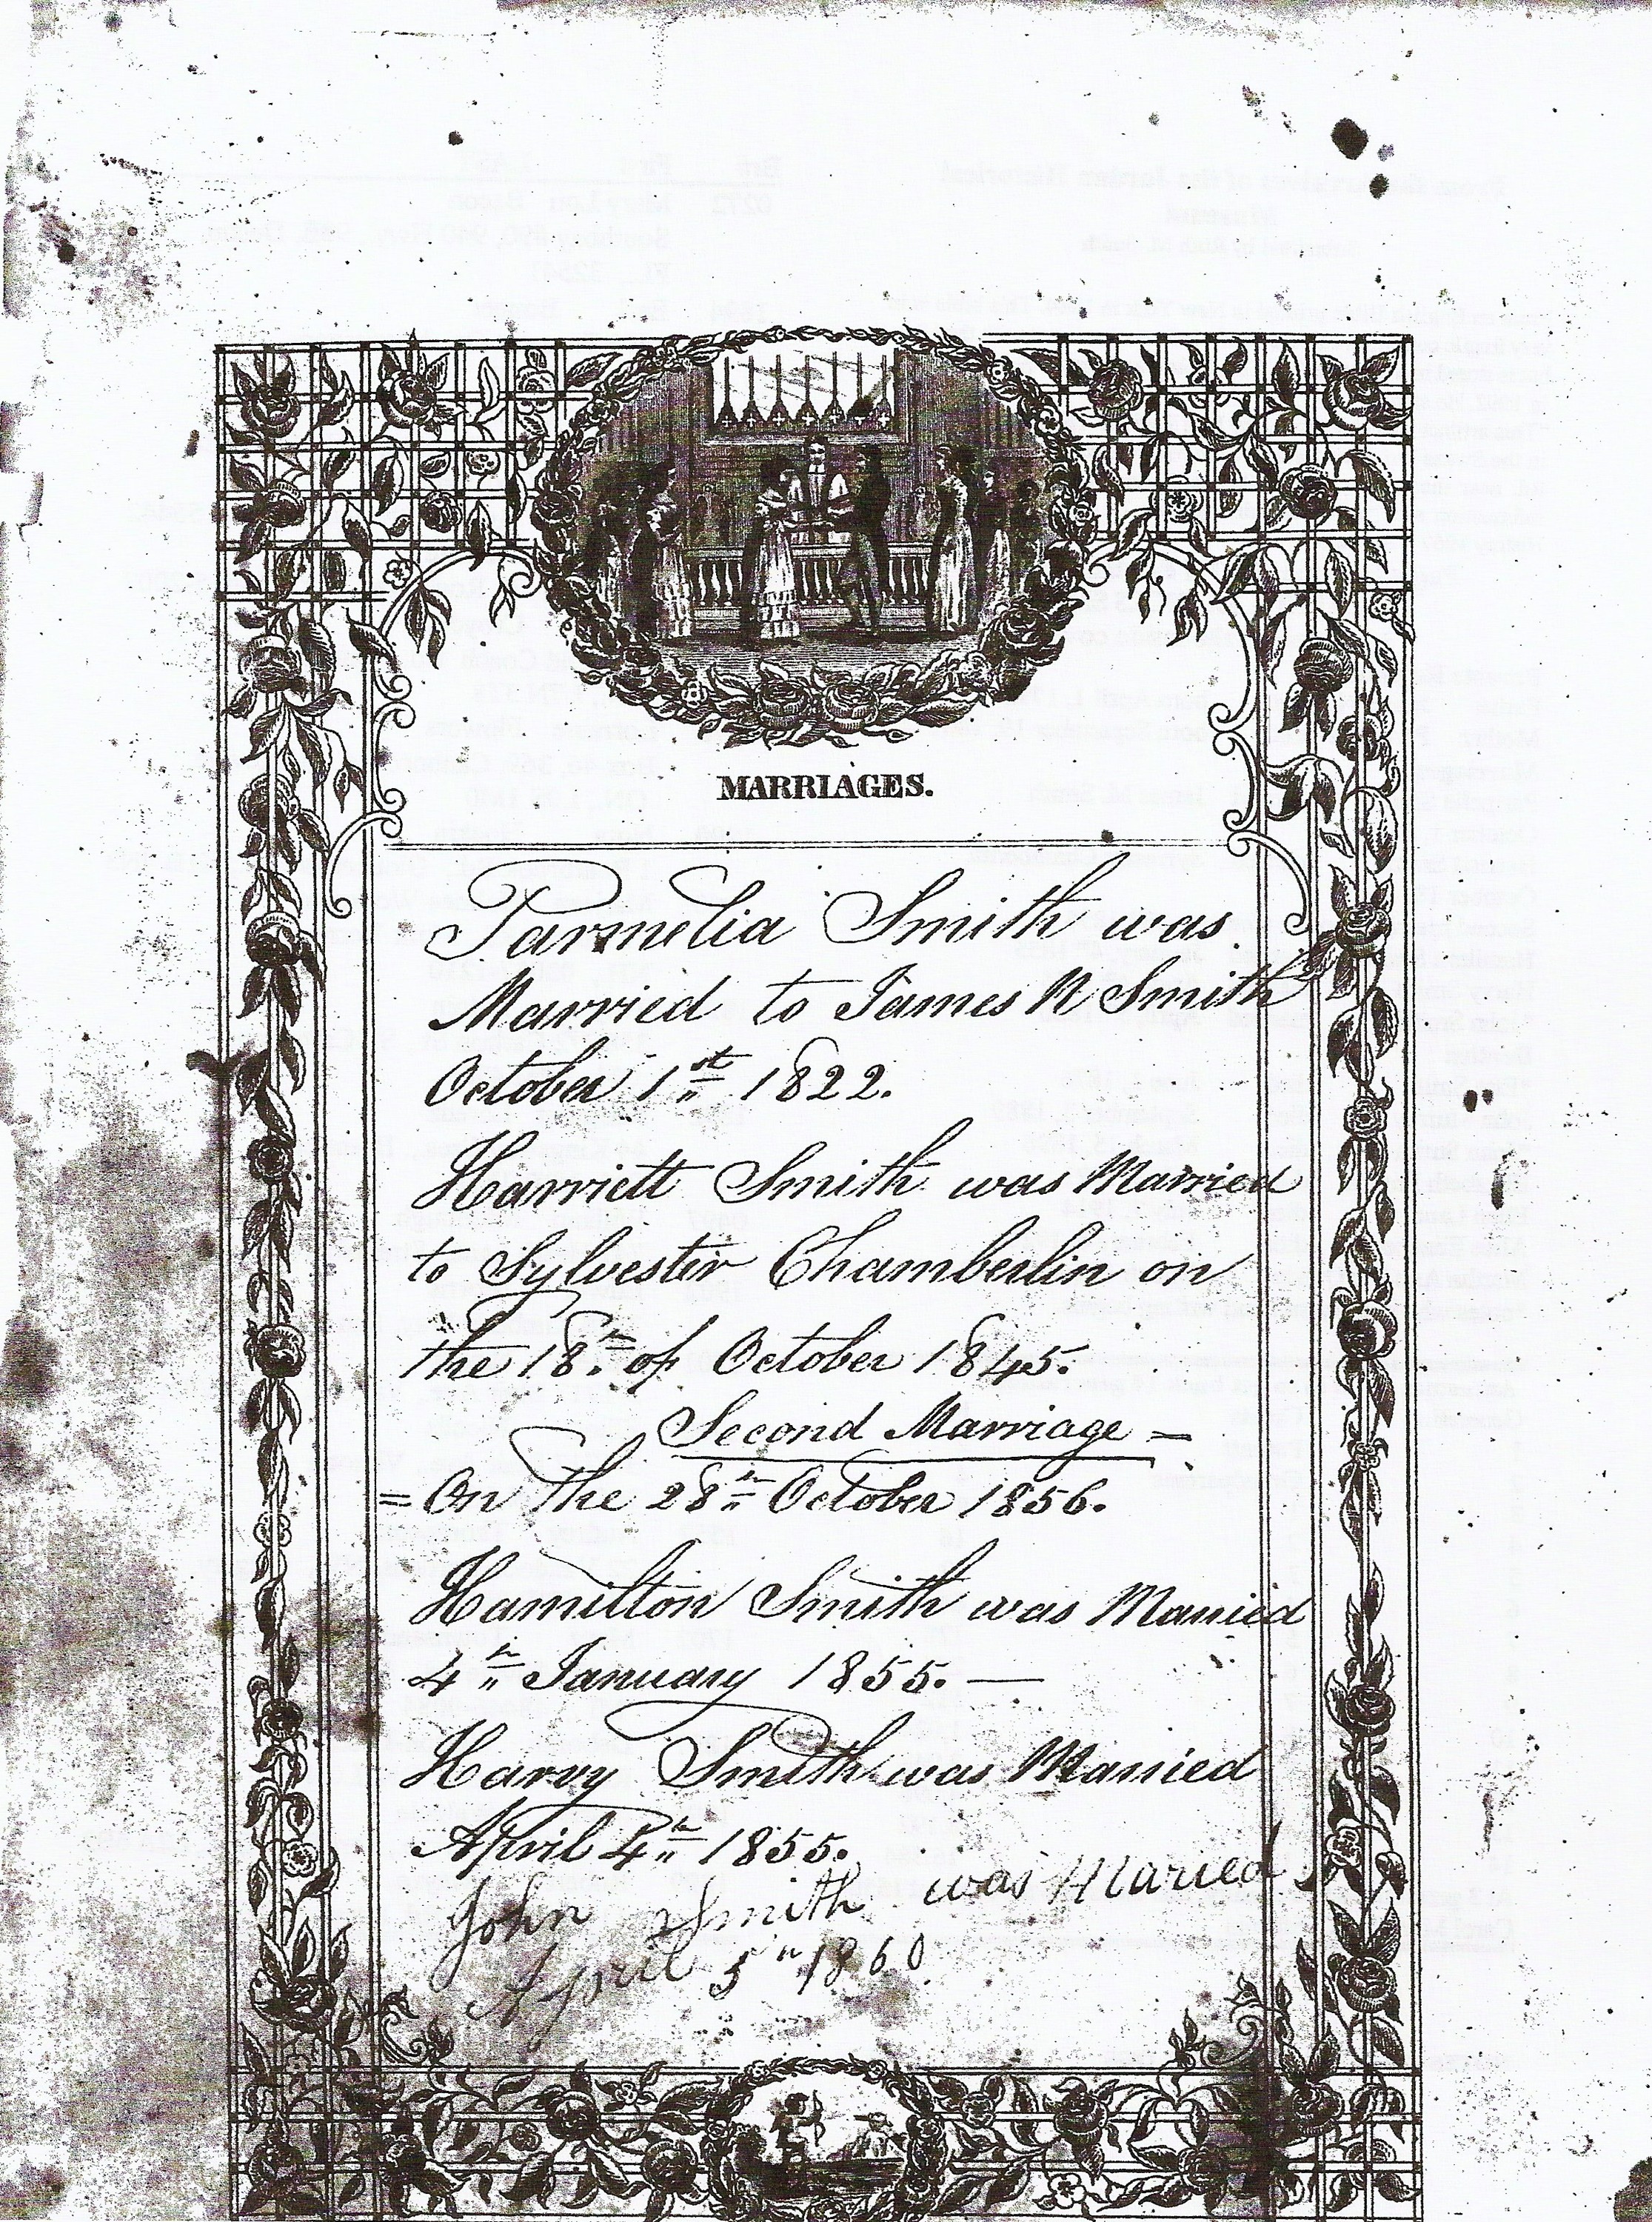 MARRIAGES.
Parmelia Smith was
Married to James N Smith
October 1st 1822.
Harriett Smith was Married
to Sylvester Chamberlin on
the 18th of October 1845.
Second Marriage =
= On the 28th October 1856.
Hamilton Smith was Married
4th January 1855. —
Harvy Smith was Married
April 4th 1855.
John Smith was Maried
April 5th 1860